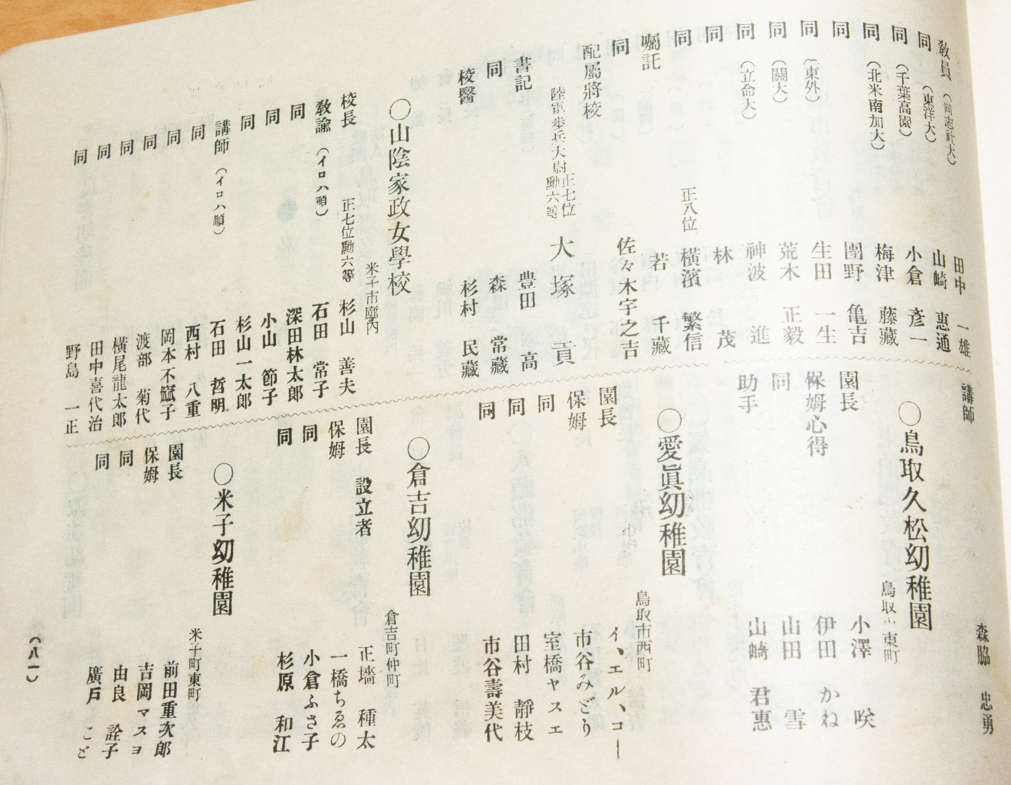 教員（同志社大）　田中一雄
同（東洋大）　山崎惠通
同（千葉高園）　小倉彦一
同（北米南加大）　梅津藤藏
同　團野亀吉
同（東外）　生田一生
同（關大）　荒木正毅
同（立命大）　神波進
同　林茂
同　正八位　橫濱繁信
囑託　若千藏
同　佐々木宇之吉
配屬將校　陸軍步兵大尉正七位勳六等　大塚貢
書記　豊田高
同　森常藏
校醫　杉村民藏
〇山陰家政女學校　米子市廓內
校長　正七位勳六等　杉山善夫
敎諭（イロハ順）　石田常子
同　深田林太郎
同　小山節子
同　杉山一太郎
講師（イロハ順）　石田哲明
同　西村八重
同　岡本不二子
同　渡部菊代
同　橫尾龍太郎
同　田中喜代治
同　野島一正
講師　森脇忠勇
〇鳥取久松幼稚園　鳥取市東町
園長　小澤咲
保姆心得　伊田かね
同　山田雪
助手　山崎君惠
〇愛眞幼稚園　鳥取市西町
園長　イ、エル、コー
保姆　市谷みどり
同　室橋ヤスエ
同　田村靜枝
同　市谷壽美代
〇倉吉幼稚園　倉吉町仲町
園長　設立者　正墻種太
保姆　一橋ちゑの
同　小倉ふさ子
同　杉原和江
〇米子幼稚園　米子町東町
園長　前田重次郎
保姆　吉岡マスヨ
同　由良詮子
同　廣戸こと
（八一）